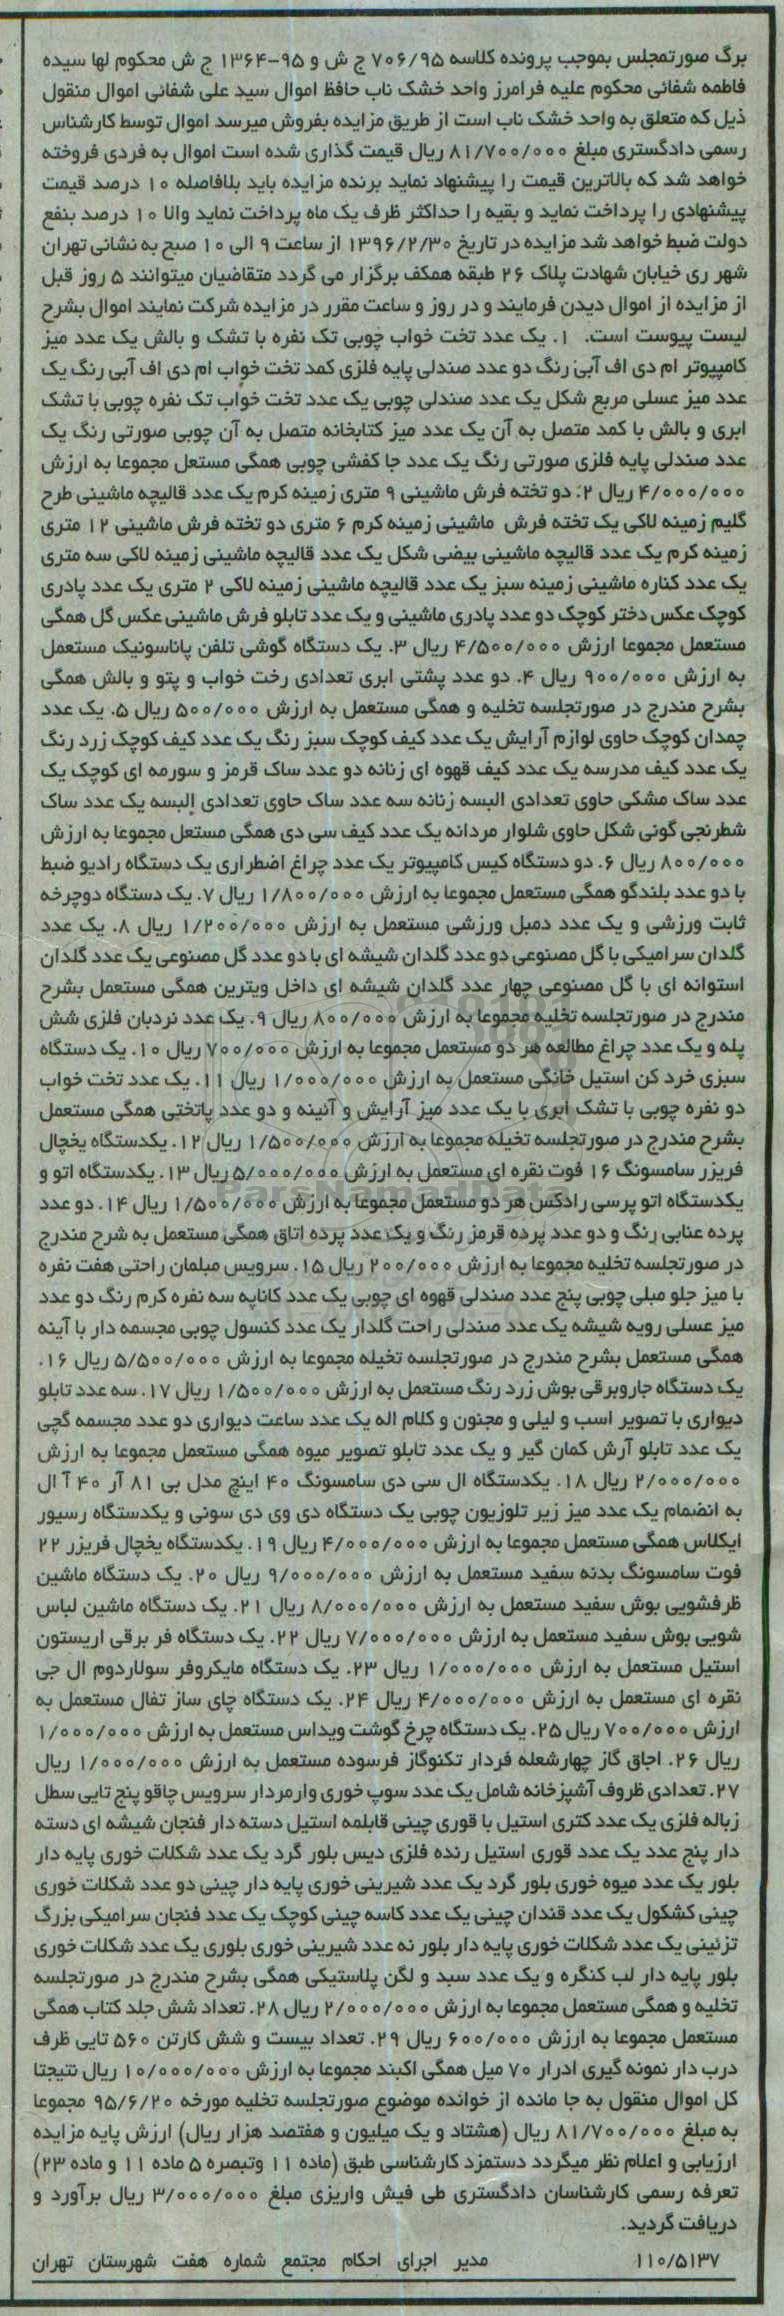 برگ صورتمجلس بموجب پرونده کلاسه ۷۰۶/۹۵ ج ش و ۹۵-۱۳۶۴ ج ش محکوم لها سیده
فاطمه شفائی محکوم علیه فرامرز واحد خشک ناب حافظ اموال سید علی شفائی اموال منقول
ذیل که متعلق به واحد خشک ناب است از طریق مزایده بفروش میرسد اموال توسط کارشناس
رسمی دادگستری مبلغ ۸۱/۷۰۰/۰۰۰ ریال قیمت گذاری شده است اموال به فردی فروخته
خواهد شد که بالاترین قیمت را پیشنهاد نماید برنده مزایده باید بلافاصله ۱۰ درصد قیمت
پیشنهادی را پرداخت نماید و بقیه را حداکثر ظرف یک ماه پرداخت نماید والا ۱۰ درصد بنفع
دولت ضبط خواهد شد مزایده در تاریخ ۱۳۹۶/۲/۳۰ از ساعت ۹ الی ۱۰ صبح به نشانی تهران
شهر ری خیابان شهادت پلاک ۲۶ طبقه همکف برگزار می گردد متقاضیان میتوانند ۵ روز قبل
از مزایده از اموال دیدن فرمایند و در روز و ساعت مقرر در مزایده شرکت نمایند اموال بشرح
لیست پیوست است. ۱. یک عدد تخت خواب چوبی تک نفره با تشک و بالش یک عدد میز
کامپیوتر ام دی اف آبی رنگ دو عدد صندلی پایه فلزی کمد تخت خواب ام دی اف آبی رنگ یک
عدد میز عسلی مربع شکل یک عدد صندلی چوبی یک عدد تخت خواب تک نفره چوبی با تشک
ابری و بالش با کمد متصل به آن یک عدد میز کتابخانه متصل به آن چوبی صورتی رنگ یک
عدد صندلی پایه فلزی صورتی رنگ یک عدد جا کفشی چوبی همگی مستعل مجموعا به ارزش
۴/۰۰۰/۰۰۰ ریال ۲. دو تخته فرش ماشینی ۹ متری زمینه کرم یک عدد قالیچه ماشینی طرح
گلیم زمینه لاکی یک تخته فرش ماشینی زمینه کرم ۶ متری دو تخته فرش ماشینی ۱۲ متری
زمینه کرم یک عدد قالیچه ماشینی بیضی شکل یک عدد قالیچه ماشینی زمینه لاکی سه متری
یک عدد کناره ماشینی زمینه سبز یک عدد قالیچه ماشینی زمینه لاکی ۲ متری یک عدد پادری
کوچک عکس دختر کوچک دو عدد پادری ماشینی و یک عدد تابلو فرش ماشینی عکس گل همگی
مستعمل مجموعا ارزش ۴/۵۰۰/۰۰۰ ریال ۳. یک دستگاه گوشی تلفن پاناسونیک مستعمل
به ارزش ۹۰۰/۰۰۰ ریال ۴. دو عدد پشتی ابری تعدادی رخت خواب و پتو و بالش همگی
بشرح مندرج در صورتجلسه تخلیه و همگی مستعمل به ارزش ۵۰۰/۰۰۰ ریال ۵. یک عدد
چمدان کوچک حاوی لوازم آرایش یک عدد کیف کوچک سبز رنگ یک عدد کیف کوچک زرد رنگ
یک عدد کیف مدرسه یک عدد کیف قهوه ای زنانه دو عدد ساک قرمز و سورمه ای کوچک یک
عدد ساک مشکی حاوی تعدادی البسه زنانه سه عدد ساک حاوی تعدادی البسه یک عدد ساک
شطرنجی گونی شکل حاوی شلوار مردانه یک عدد کیف سی دی همگی مستعل مجموعا به ارزش
۸۰۰/۰۰۰ ریال ۶. دو دستگاه کیس کامپیوتر یک عدد چراغ اضطراری یک دستگاه رادیو ضبط
با دو عدد بلندگو همگی مستعمل مجموعا به ارزش ۱/۸۰۰/۰۰۰ ریال ۷. یک دستگاه دوچرخه
ثابت ورزشی و یک عدد دمبل ورزشی مستعمل به ارزش ۱/۲۰۰/۰۰۰ ریال ۸. یک عدد
گلدان سرامیکی با گل مصنوعی دو عدد گلدان شیشه ای با دو عدد گل مصنوعی یک عدد گلدان
استوانه ای با گل مصنوعی چهار عدد گلدان شیشه ای داخل ویترین همگی مستعمل بشرح
مندرج در صورتجلسه تخلیه مجموعا به ارزش ۸۰۰/۰۰۰ ریال ۹. یک عدد نردبان فلزی شش
پله و یک عدد چراغ مطالعه هر دو مستعمل مجموعا به ارزش ۷۰۰/۰۰۰ ریال ۱۰. یک دستگاه
سبزی خرد کن استیل خانگی مستعمل به ارزش ۱/۰۰۰/۰۰۰ ریال ۱۱. یک عدد تخت خواب
دو نفره چوبی با تشک ابری با یک عدد میز آرایش و آئینه و دو عدد پاتختی همگی مستعمل
بشرح مندرج در صورتجلسه تخیله مجموعا به ارزش ۱/۵۰۰/۰۰۰ ریال ۱۲. یکدستگاه یخچال
فریزر سامسونگ ۱۶ فوت نقره ای مستعمل به ارزش ۵/۰۰۰/۰۰۰ ریال ۱۳. یکدستگاه اتو و
یکدستگاه اتو پرسی رادکس هر دو مستعمل مجموعا به ارزش ۱/۵۰۰/۰۰۰ ریال ۱۴. دو عدد
پرده عنابی رنگ و دو عدد پرده قرمز رنگ و یک عدد پرده اتاق همگی مستعمل به شرح مندرج
در صورتجلسه تخلیه مجموعا به ارزش ۲۰۰/۰۰۰ ریال ۱۵. سرویس مبلمان راحتی هفت نفره
با میز جلو مبلی چوبی پنج عدد صندلی قهوه ای چوبی یک عدد کاناپه سه نفره کرم رنگ دو عدد
میز عسلی رویه شیشه یک عدد صندلی راحت گلدار یک عدد کنسول چوبی مجسمه دار با آینه
همگی مستعمل بشرح مندرج در صورتجلسه تخیله مجموعا به ارزش ۵/۵۰۰/۰۰۰ ریال ۱۶.
یک دستگاه جاروبرقی بوش زرد رنگ مستعمل به ارزش ۱/۵۰۰/۰۰۰ ریال ۱۷. سه عدد تابلو
دیواری با تصویر اسب و لیلی و مجنون و کلام اله یک عدد ساعت دیواری دو عدد مجسمه گچی
یک عدد تابلو آرش کمان گیر و یک عدد تابلو تصویر میوه همگی مستعمل مجموعا به ارزش
۲/۰۰۰/۰۰۰ ریال ۱۸. یکدستگاه ال سی دی سامسونگ ۴۰ اینچ مدل بی ۸۱ آر ۴۰ آ ال
به انضمام یک عدد میز زیر تلوزیون چوبی یک دستگاه دی وی دی سونی و یکدستگاه رسیور
ایکلاس همگی مستعمل مجموعا به ارزش ۴/۰۰۰/۰۰۰ ریال ۱۹. یکدستگاه یخچال فریزر ۲۲
فوت سامسونگ بدنه سفید مستعمل به ارزش ۹/۰۰۰/۰۰۰ ریال ۲۰. یک دستگاه ماشین
ظرفشویی بوش سفید مستعمل به ارزش ۸/۰۰۰/۰۰۰ ریال ۲۱. یک دستگاه ماشین لباس
شویی بوش سفید مستعمل به ارزش ۷/۰۰۰/۰۰۰ ریال ۲۲. یک دستگاه فر برقی اریستون
استیل مستعمل به ارزش ۱/۰۰۰/۰۰۰ ریال ۲۳. یک دستگاه مایکروفر سولاردوم ال جی
نقره ای مستعمل به ارزش ۴/۰۰۰/۰۰۰ ریال ۲۴. یک دستگاه چای ساز تفال مستعمل به
ارزش ۷۰۰/۰۰۰ ریال ۲۵. یک دستگاه چرخ گوشت ویداس مستعمل به ارزش ۱/۰۰۰/۰۰۰
ریال ۲۶. اجاق گاز چهارشعله فردار تکنوگاز فرسوده مستعمل به ارزش ۱/۰۰۰/۰۰۰ ریال
۲۷. تعدادی ظروف آشپزخانه شامل یک عدد سوپ خوری وارمردار سرویس چاقو پنج تایی سطل
زباله فلزی یک عدد کتری استیل با قوری چینی قابلمه استیل دسته دار فنجان شیشه ای دسته
دار پنج عدد یک عدد قوری استیل رنده فلزی دیس بلور گرد یک عدد شکلات خوری پایه دار
بلور یک عدد میوه خوری بلور گرد یک عدد شیرینی خوری پایه دار چینی دو عدد شکلات خوری
چینی کشکول یک عدد قندان چینی یک عدد کاسه چینی کوچک یک عدد فنجان سرامیکی بزرگ
تزئینی یک عدد شکلات خوری پایه دار بلور نه عدد شیرینی خوری بلوری یک عدد شکلات خوری
بلور پایه دار لب کنگره و یک عدد سبد و لگن پلاستیکی همگی بشرح مندرج در صورتجلسه
تخلیه و همگی مستعمل مجموعا به ارزش ۲/۰۰۰/۰۰۰ ریال ۲۸. تعداد شش جلد کتاب همگی
مستعمل مجموعا به ارزش ۶۰۰/۰۰۰ ریال ۲۹. تعداد بیست و شش کارتن ۵۶۰ تایی ظرف
درب دار نمونه گیری ادرار ۷۰ میل همگی اکبند مجموعا به ارزش ۱۰/۰۰۰/۰۰۰ ریال نتیجتا
کل اموال منقول به جا مانده از خوانده موضوع صورتجلسه تخلیه مورخه ۹۵/۶/۲۰ مجموعا
به مبلغ ۸۱/۷۰۰/۰۰۰ ریال (هشتاد و یک میلیون و هفتصد هزار ریال) ارزش پایه مزایده
ارزیابی و اعلام نظر میگردد دستمزد کارشناسی طبق (ماده ۱۱ وتبصره ۵ ماده ۱۱ و ماده ۲۳)
تعرفه رسمی کارشناسان دادگستری طی فیش واریزی مبلغ ۳/۰۰۰/۰۰۰ ریال برآورد و
دریافت گردید.
۱۱۰/۵۱۳۷ مدیر اجرای احکام مجتمع شماره هفت شهرستان تهران
ParaNamadData